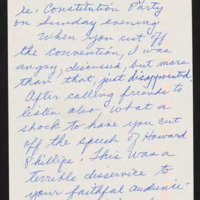 re: Constitution Party
on Sunday evening
When you cut off
the convention, I was
angry, diseused, but more
than that, just disappointed.
After calling friends to
listen also, what a
shock to have you cut
off the speech of Howard
Phillips! This was a
terrible desservice to
your faithful audience